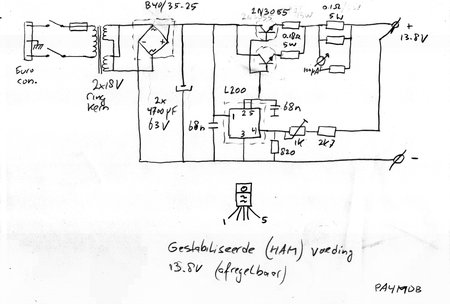 B40/35-25
2N3055
0.1Ω
5W
+
13.8V
0.18Ω
5W
100µA
Euro
con.
2x18V
ring
kern
2x
4700µF
63V
L200
68n
2 5
1
4
3
68n
1K
2K2
820
-
1 5
Gestabiliseerde (HAM) voeding
13.8V (afregelbaar)
PA4MDB